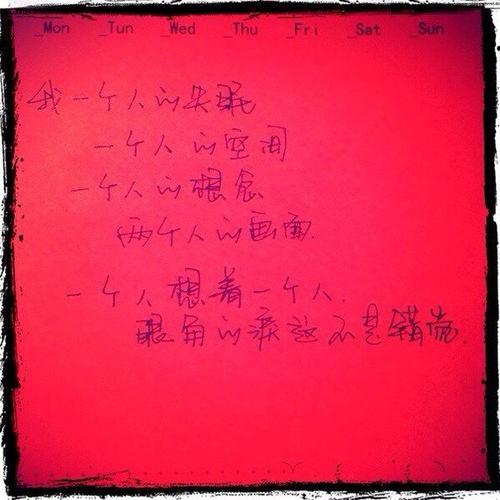 _Mon _Tun _Wed _Thu _Fri _Sat _Sun
我一个人的失眠
一个人的空间
一个人的想念
两个人的画面
一个人想着一个人.
眼角的泪这不是错觉.